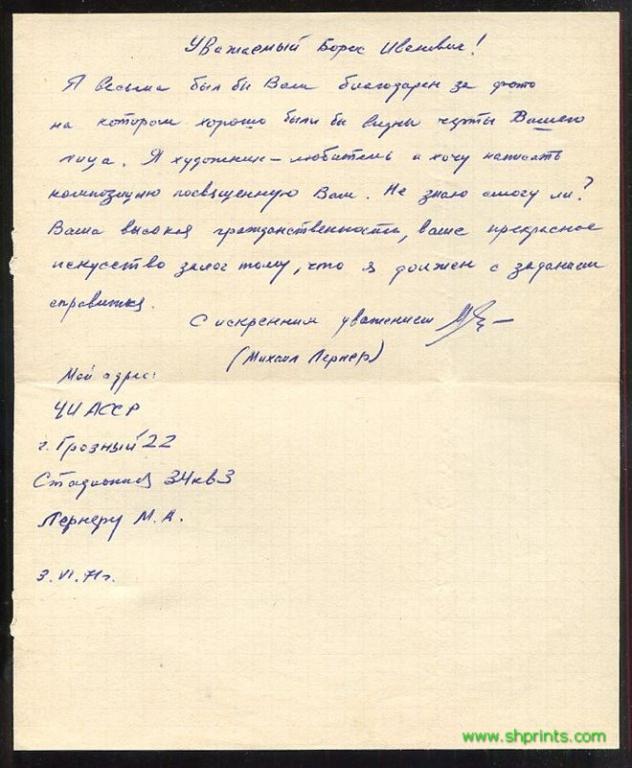 Уважаемый Борис Иванович!
Я весьма был бы Вам благодарен за фото
на котором хорошо были бы видны черты Вашего
лица. Я художник-любитель и хочу написать
композицию посвященную Вам. Не знаю смогу ли?
Ваша высокая гражданственность, ваше прекрасное
искусство залог тому, что я должен с заданием
справиться.
С искренним уважением
(Михаил Лернер)
Мой адрес:
ЧИАССР
г. Грозный 22
Стадионная 34 кв 3
Лернеру М.А.
3.VI.71г.
www.shprints.com